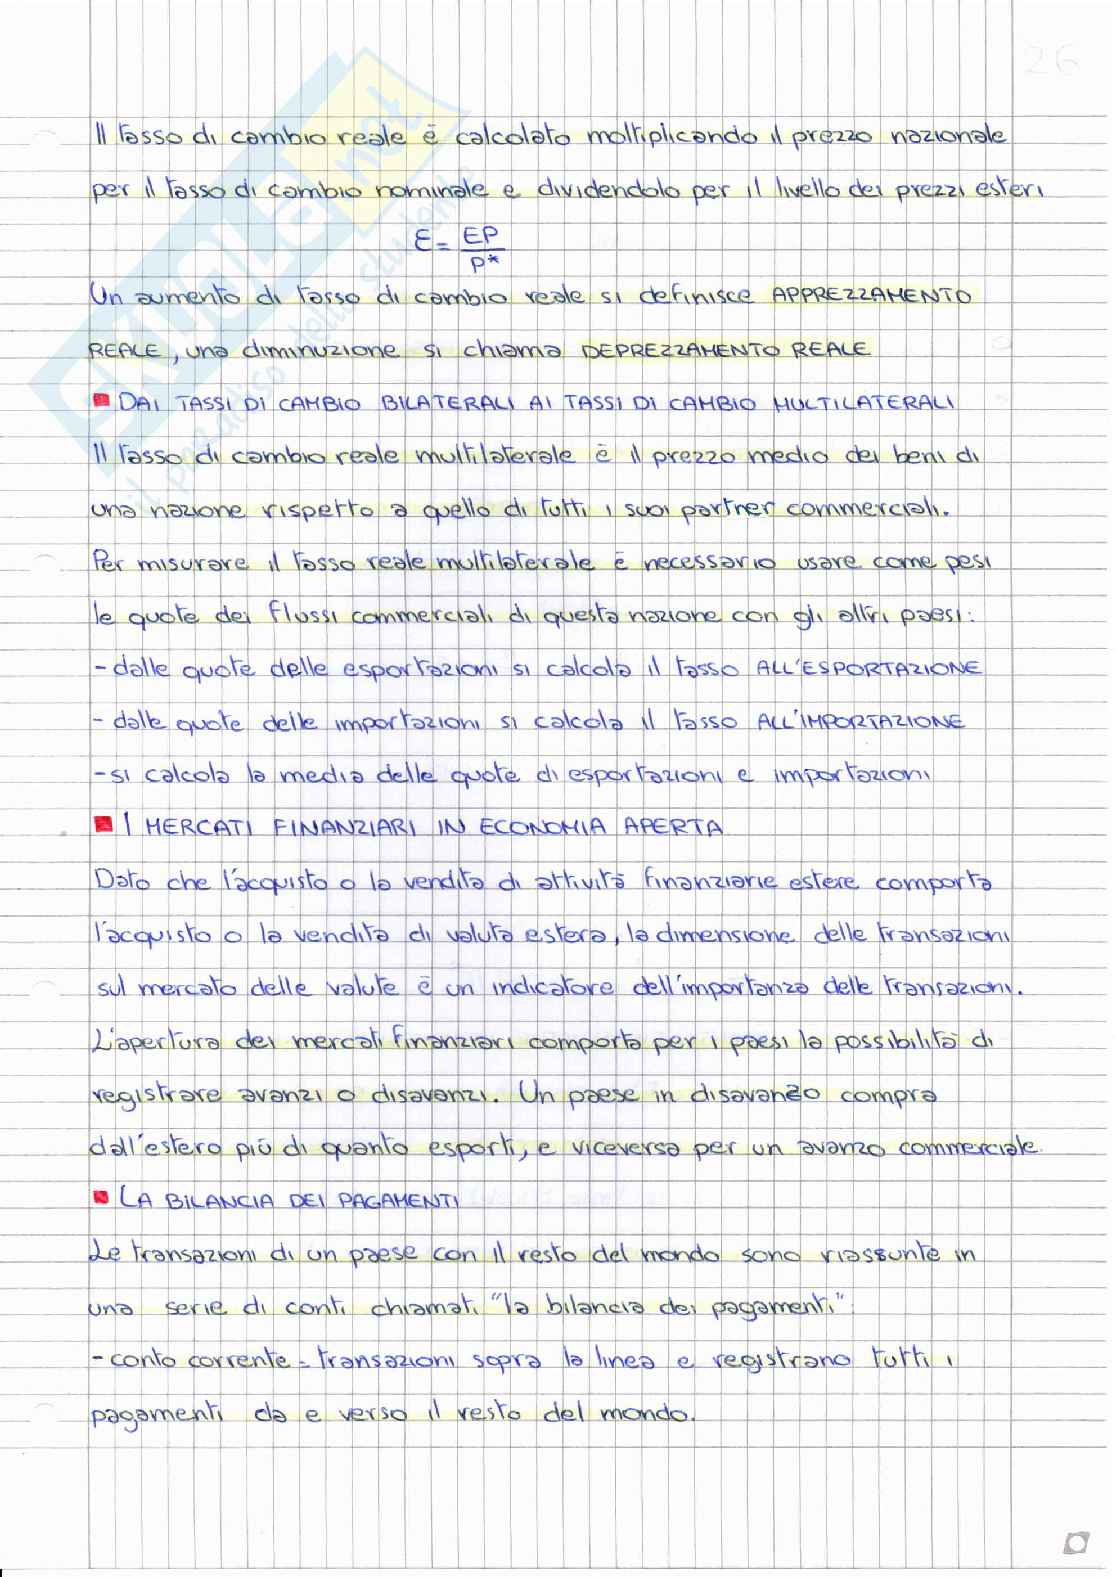 26
Il tasso di cambio reale è calcolato moltiplicando il prezzo nazionale
per il tasso di cambio nominale e dividendolo per il livello dei prezzi esteri
Ɛ = EP / P*
Un aumento di tasso di cambio reale si definisce APPREZZAMENTO
REALE, una diminuzione si chiama DEPREZZAMENTO REALE
DAI TASSI DI CAMBIO BILATERALI AI TASSI DI CAMBIO MULTILATERALI
Il tasso di cambio reale multilaterale è il prezzo medio dei beni di
una nazione rispetto a quello di tutti i suoi partner commerciali.
Per misurare il tasso reale multilaterale è necessario usare come pesi
le quote dei flussi commerciali di questa nazione con gli altri paesi:
- dalle quote delle esportazioni si calcola il tasso ALL'ESPORTAZIONE
- dalle quote delle importazioni si calcola il tasso ALL'IMPORTAZIONE
- si calcola la media delle quote di esportazioni e importazioni
I MERCATI FINANZIARI IN ECONOMIA APERTA
Dato che l'acquisto o la vendita di attività finanziarie estere comporta
l'acquisto o la vendita di valuta estera, la dimensione delle transazioni
sul mercato delle valute è un indicatore dell'importanza delle transazioni.
L'apertura dei mercati finanziari comporta per i paesi la possibilità di
registrare avanzi o disavanzi. Un paese in disavanzo compra
dall'estero più di quanto esporti, e viceversa per un avanzo commerciale.
LA BILANCIA DEI PAGAMENTI
Le transazioni di un paese con il resto del mondo sono riassunte in
una serie di conti chiamati "la bilancia dei pagamenti":
- conto corrente = transazioni sopra la linea e registrano tutti i
pagamenti da e verso il resto del mondo.
skuola.net
il paradiso dello studente